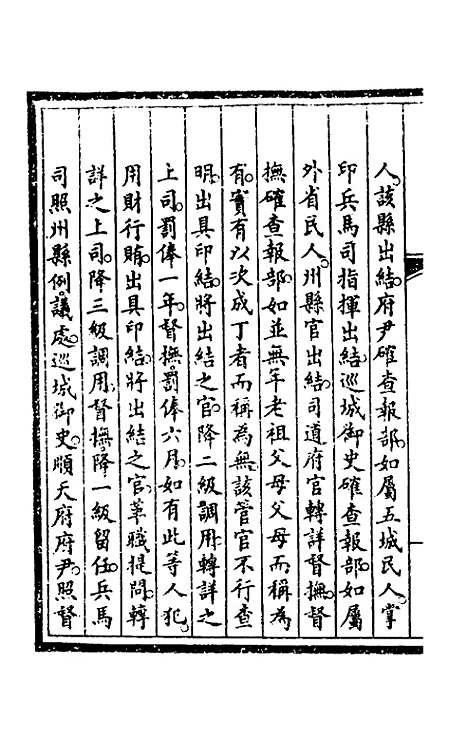 人。該縣出結。府尹確查報部。如屬五城民人。掌
印兵馬司指揮出結。巡城御史確查報部。如屬
外省民人。州縣官出結。司道府官轉詳督撫。督
撫確查報部。如並無年老祖父母父母而稱為
有。實有以次成丁者而稱為無。該管官不行查
明。出具印結。將出結之官。降二級調用。轉詳之
上司。罰俸一年。督撫。罰俸六月。如有此等人犯。
用財行賄。出具印結。將出結之官。革職提問。轉
詳之上司。降三級調用。督撫。降一級留任。兵馬
司照州縣例議處。巡城御史。順天府府尹。照督